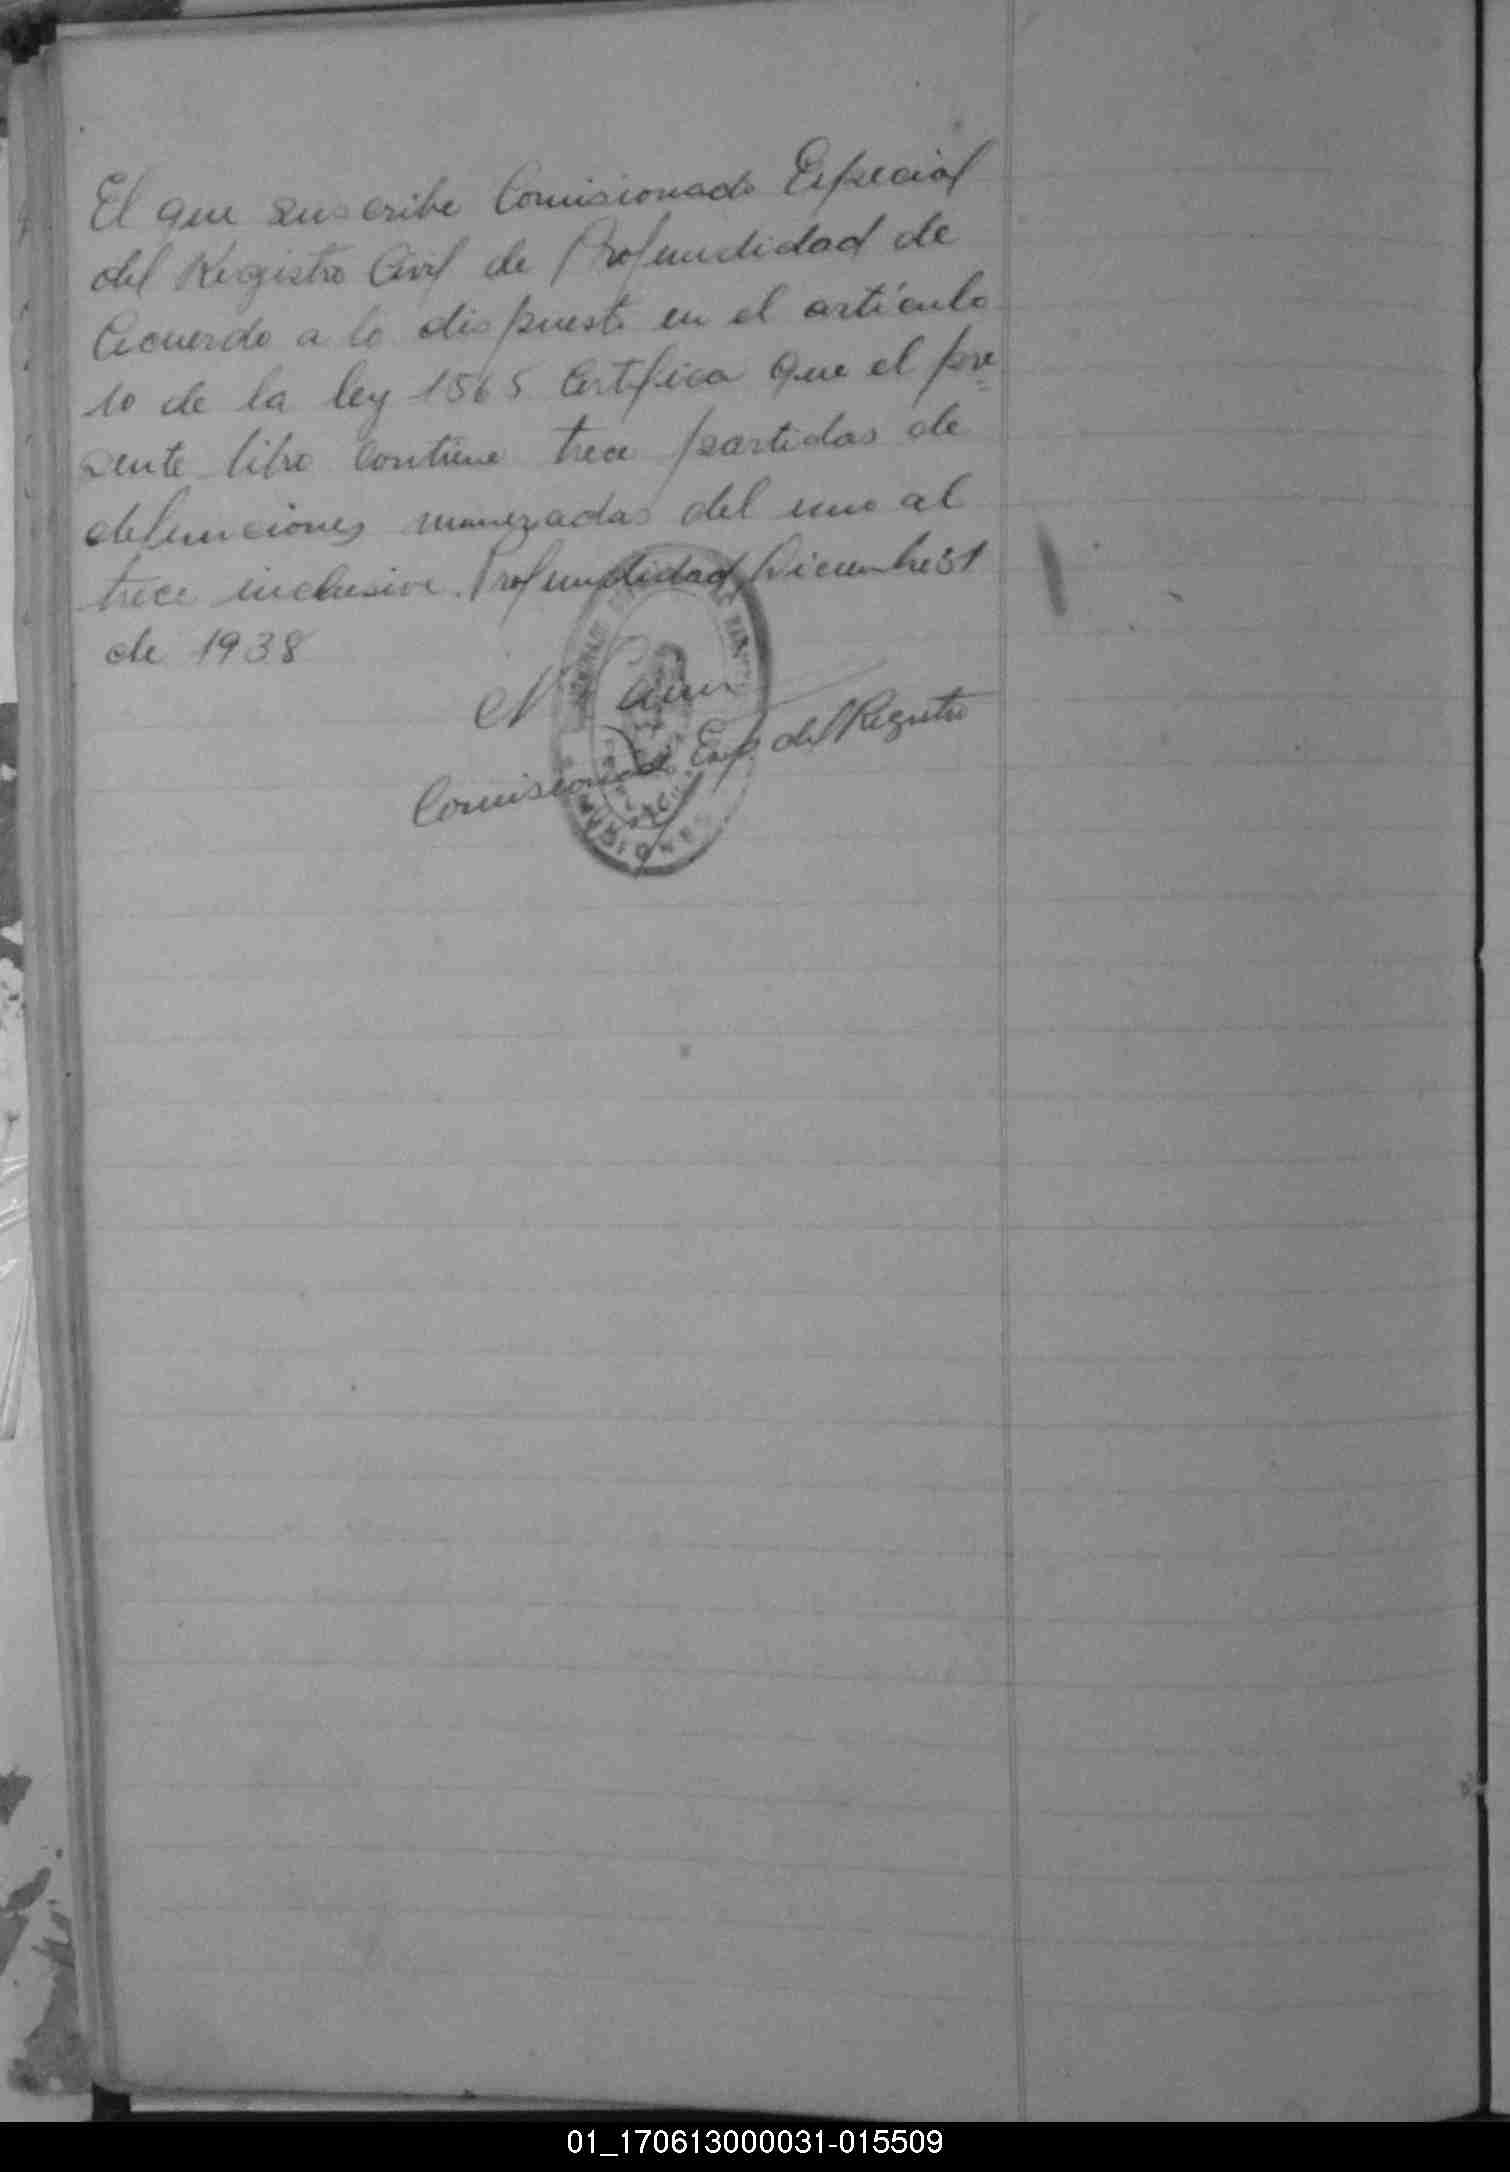 El que suscribe Comisionado Especial
del Registro Civil de Profundidad de
Acuerdo a lo dispuesto en el artículo
10 de la ley 1565 Certifica que el pre=
sente libro contiene trece partidas de
defunciones numeradas del uno al
trece inclusive. Profundidad Diciembre 31
de 1938
Comisionado Esp. del Registro
01_170613000031-015509